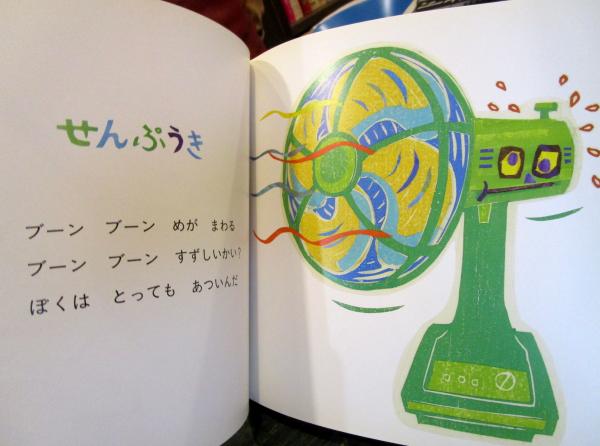 せんぷうき
ブーン ブーン めが まわる
ブーン ブーン すずしいかい?
ぼくは とっても あついんだ